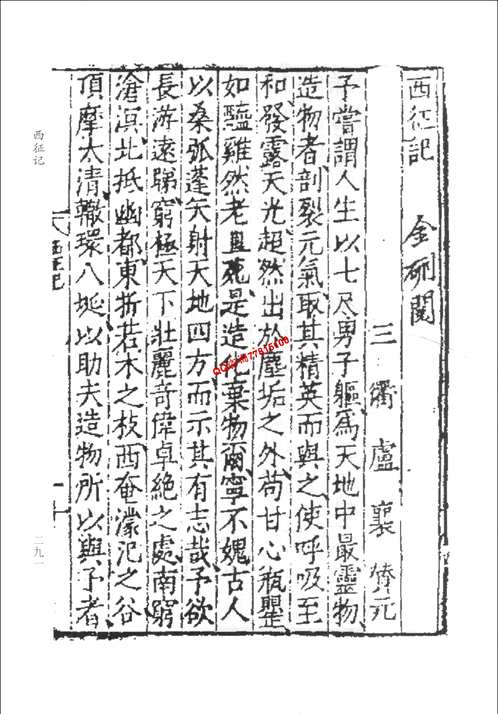 西征記 金𠛬閣
三衢盧襄賛元
予嘗謂人生以七尽男子軀為天地中最靈物
造物者剖裂元氣取其精英而與之使呼吸至
和發露天光超然出於塵垢之外苟甘心瓶罌
如醯雞然老且死是造化棄物爾寧不媿古人
以桑弧蓬矢射天地四方而示其有志哉予欲
長游遠睇窮極天下壯麗奇偉卓絶之處南窮
滄溟北抵幽都東折若木之枝西奄濛汜之谷
頂摩太清轍環八埏以助夫造物所以與予者
西征记
二九一